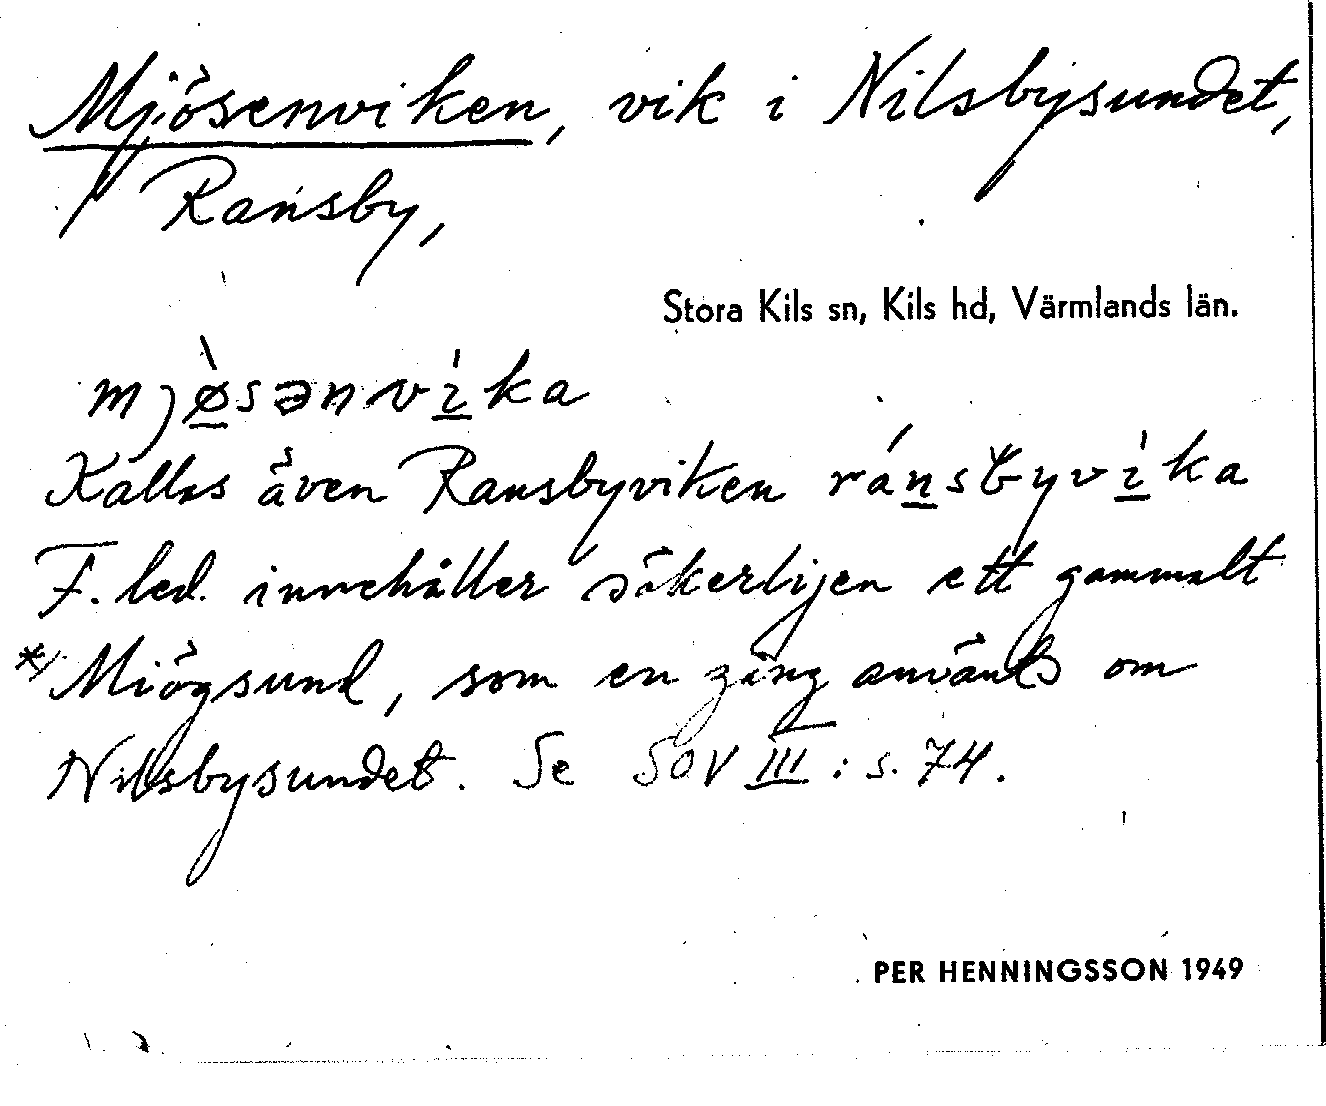 Mjösenviken, vik i Nilsbysundet,
Ransby,
Stora Kils sn, Kils hd, Värmlands län.
mjø̲̀sənvì̲ka
Kallas även Ransbyviken rán̲sbyvì̲ka
F. led. innehåller säkerligen ett gammalt
*) Miögsund, som en gång använts om
Nilsbysundet. Se SOV III: s. 74.
PER HENNINGSSON 1949